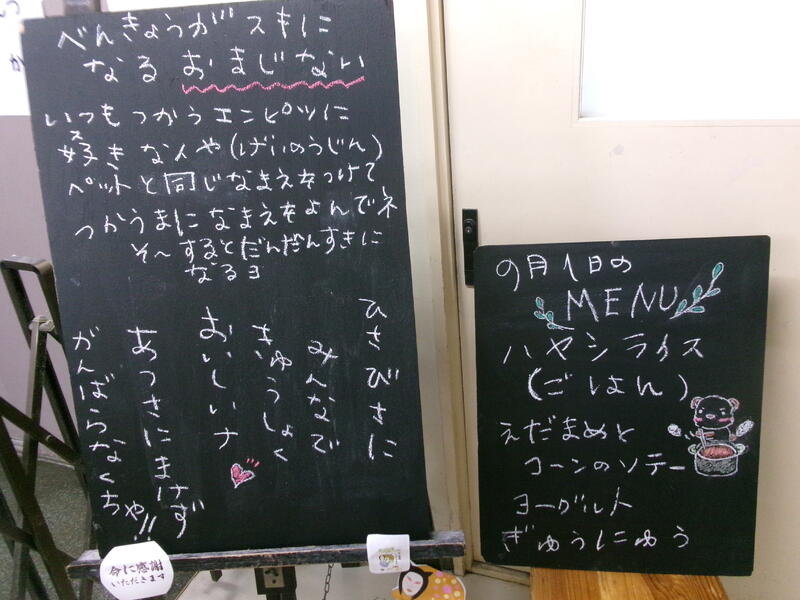 べんきょうがスキに
なるおまじない
いつもつかうエンピツに
好きな人や(げいのうじん)
ペットと同じなまえをつけて
つかうまになまえをよんでネ
そ〜するとだんだんすきに
なるヨ
ひさびさに
みんなで
きゅうしょく
おいしいナ
あつさにまけず
がんばらなくちゃ!!
今に感謝
いただきます
9月1日の
MENU
ハヤシライス
(ごはん)
えだまめと
コーンのソテー
ヨーグルト
ぎゅうにゅう